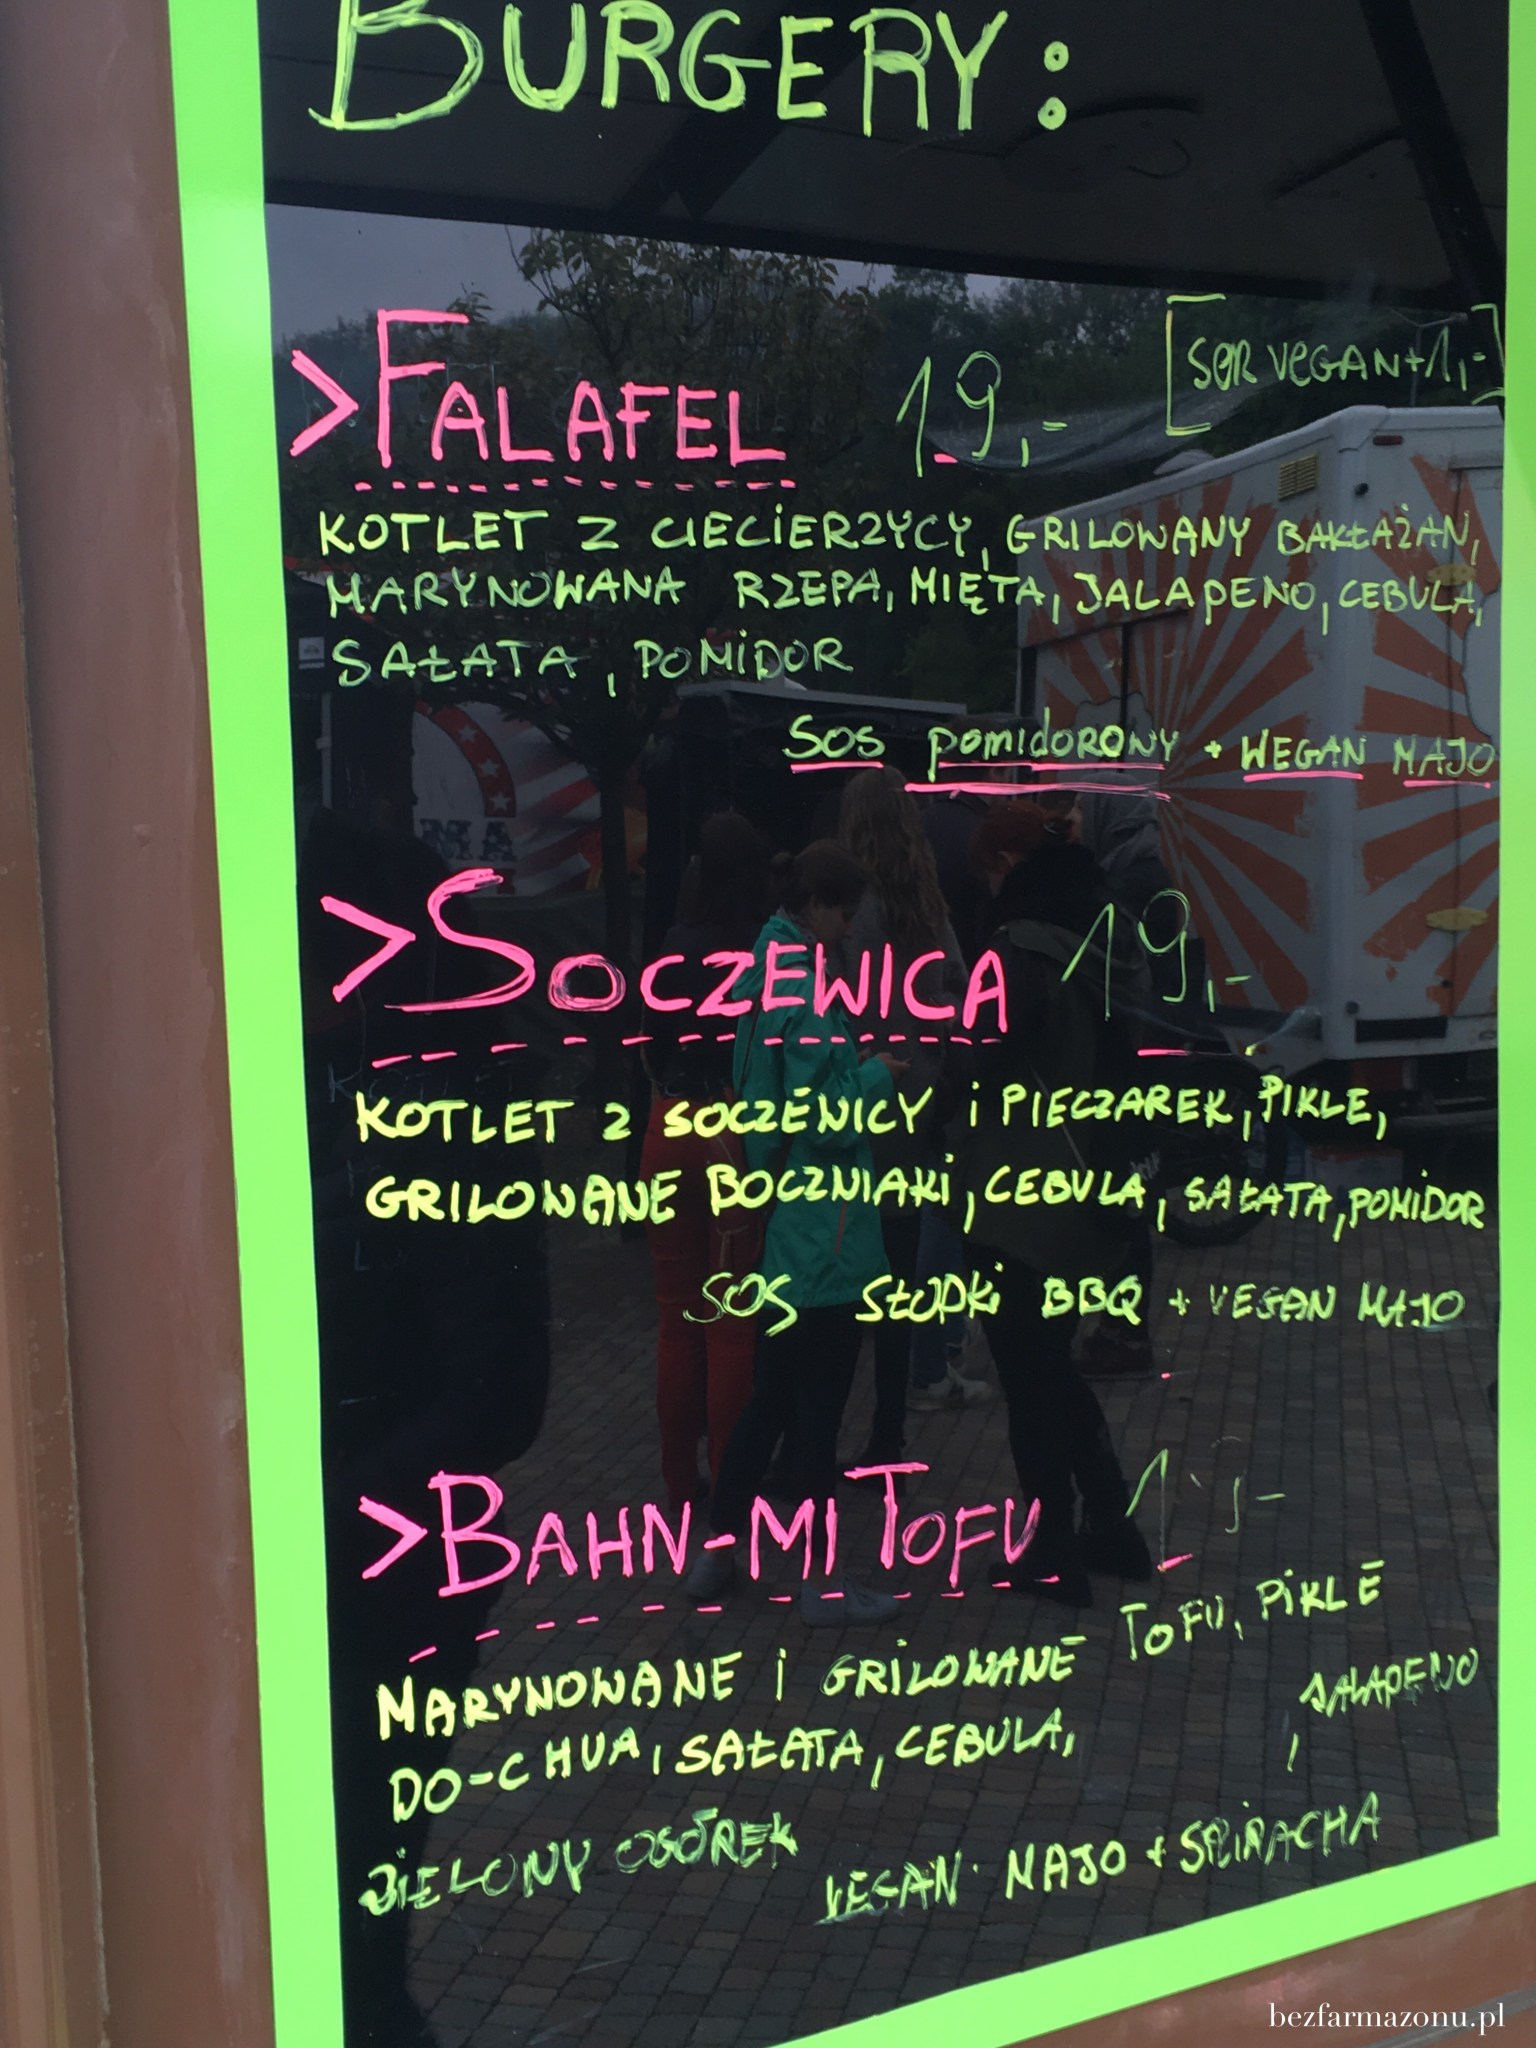 BURGERY:
>FALAFEL 19,- [SER VEGAN+1,-]
KOTLET Z CIECIERZYCY, GRILOWANY BAKŁAŻAN,
MARYNOWANA RZEPA, MIĘTA, JALAPENO, CEBULA,
SAŁATA, POMIDOR
SOS pomidorowy + WEGAN MAJO
>SOCZEWICA 19,-
KOTLET Z SOCZEWICY i PIECZAREK, PIKLE,
GRILOWANE BOCZNIAKI, CEBULA, SAŁATA, POMIDOR
SOS SŁODKi BBQ + VEGAN MAJO
>BAHN-MI TOFU
MARYNOWANE i GRILOWANE TOFU, PIKLE
DO-CHUA, SAŁATA, CEBULA, JALAPENO
ZIELONY OGÓREK, VEGAN MAJO + SRIRACHA
MA
bezfarmazonu.pl